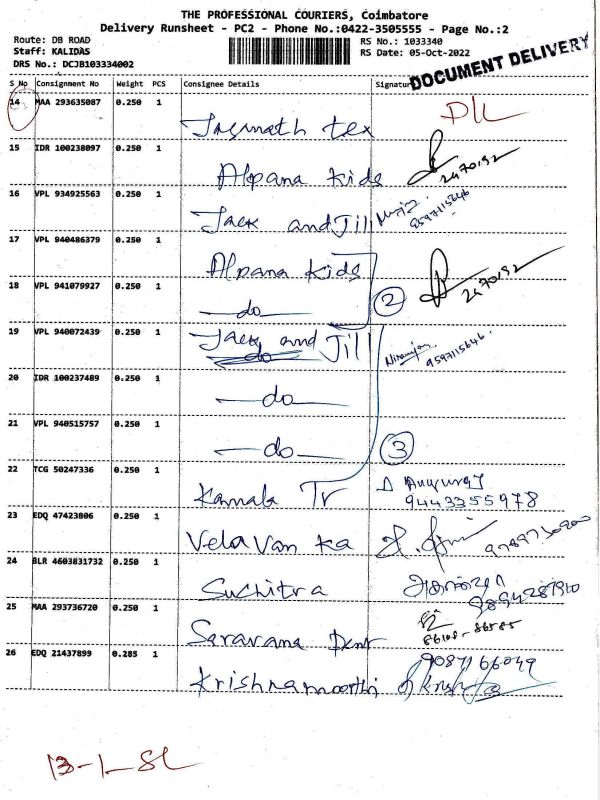 THE PROFESSIONAL COURIERS, Coimbatore
Delivery Runsheet - PC2 - Phone No.:0422-3505555 - Page No.:2
Route: DB ROAD
Staff: KALIDAS
DRS No.: DCJB103334002
RS No.: 1033340
RS Date: 05-Oct-2022
DOCUMENT DELIVERY
S No Consignment No Weight PCS Consignee Details Signatur
14 MAA 293635087 0.250 1
15 IDR 100238097 0.250 1 Alpana kids 2470192
16 VPL 934925563 0.250 1 Jack and Jill 9597115646
17 VPL 940486379 0.250 1 Alpana kids
18 VPL 941079927 0.250 1 do 2 2470192
19 VPL 940072439 0.250 1 Jack and Jill Niranjan 9597115646
20 IDR 100237489 0.250 1 do
21 VPL 940515757 0.250 1 do 3
22 TCG 50247336 0.250 1 Kamala Tr 9443355978
23 EDQ 47423806 0.250 1 Velavan ka
24 BLR 4603831732 0.250 1 Suchitra
25 MAA 293736720 0.250 1 Saravana 86108-86585
26 EDQ 21437899 0.285 1 Krishnamoorthi 9087166049